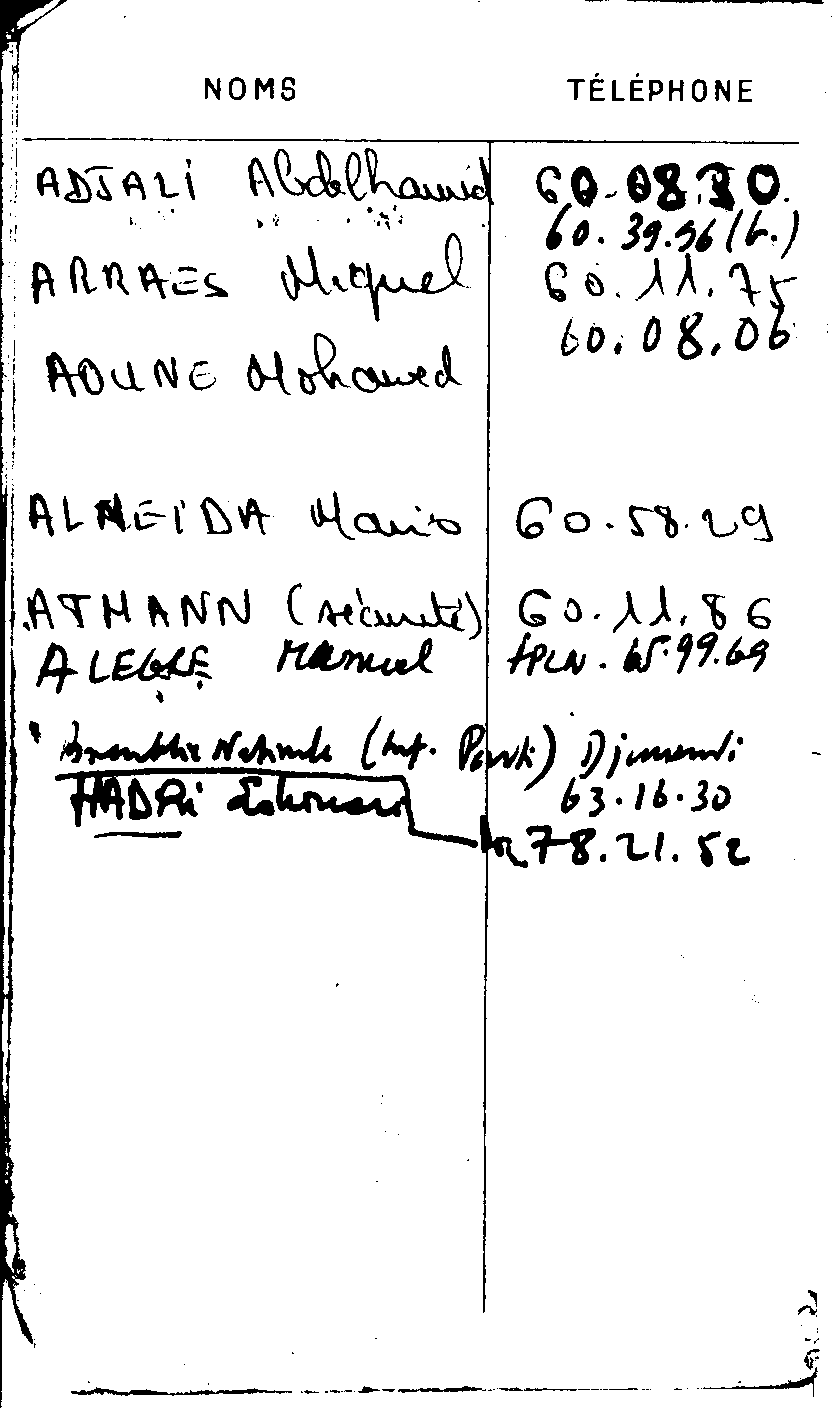 NOMS TÉLÉPHONE
ADJALI Abdelhamid 60.08.30.
60.39.56 (b.)
ARRAES Miguel 60.11.75
60.08.06
AOUNE Mohamed
ALMEIDA Mario 60.58.29
ATMANN (sécurité) 60.11.86
ALEGRE Manuel FPLN. 65.99.69
Assemblée Nationale (Inf. ) Djemendi
HADRI 63.16.30
78.21.52